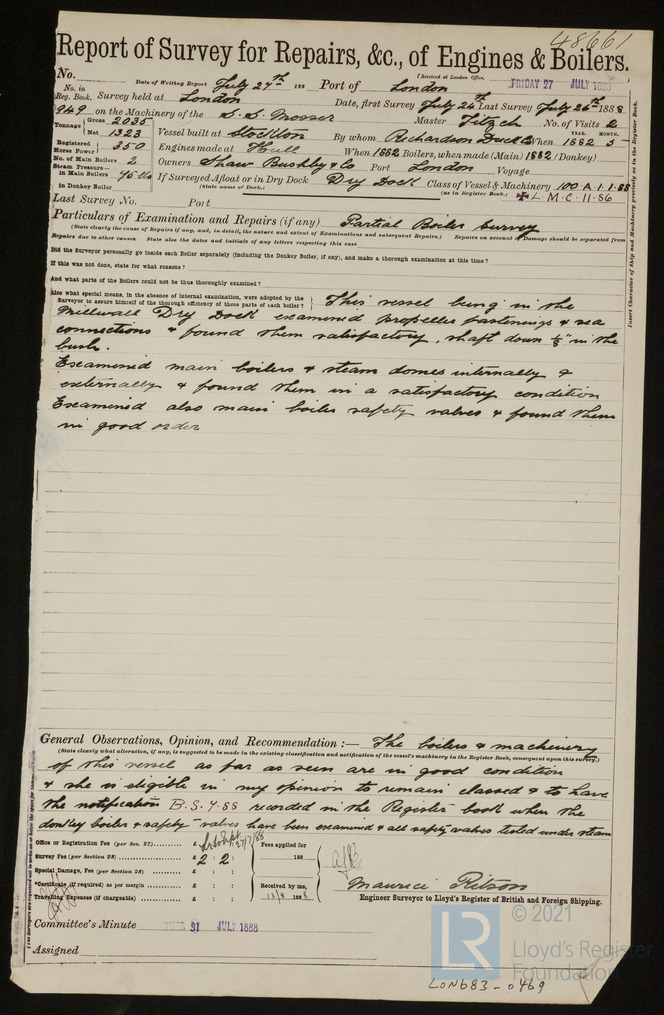 48661
Report of Survey for Repairs, &c., of Engines & Boilers.
(Received at London Office,
No.
Date of Writing Report July 27th 188 Port of London FRIDAY 27 JULY 1888
No. in Reg. Book. Survey held at London Date, first Survey July 24th Last Survey July 26th 1888
949 on the Machinery of the S.S. Mosser Master No. of Visits 2
Tonnage Gross 2035 Net 1323 Vessel built at Stockton By whom Richardson Duck & Co When 1882 5
YEAR. MONTH.
Registered Horse Power 350 Engines made at Hull When 1882 Boilers, when made (Main) 1882 (Donkey)
No. of Main Boilers 2 Owners Shaw Bushby & Co Port London Voyage
Steam Pressure in Main Boilers 75 lb If Surveyed Afloat or in Dry Dock Dry Dock Class of Vessel & Machinery 100 A.1.1.88
in Donkey Boiler (State name of Dock.) (as in Register Book.) L.M.C. 11.86
Last Survey No. Port
Particulars of Examination and Repairs (if any) Partial Boiler Survey
(State clearly the cause of Repairs if any, and, in detail, the nature and extent of Examinations and subsequent Repairs.) Repairs on account of Damage should be separated from
Repairs due to other causes. State also the dates and initials of any letters respecting this case
Did the Surveyor personally go inside each Boiler separately (including the Donkey Boiler, if any), and make a thorough examination at this time?
If this was not done, state for what reasons?
And what parts of the Boilers could not be thus thoroughly examined?
Also what special means, in the absence of internal examination, were adopted by the
Surveyor to assure himself of the thorough efficiency of those parts of each boiler? This vessel being in the
Millwall Dry Dock examined propeller fastenings & sea
connections & found them satisfactory, shaft down ⅛" in the
bush.
Examined main boilers & steam domes internally &
externally & found them in a satisfactory condition
Examined also main boiler safety valves & found them
in good order
Insert Character of Ship and Machinery precisely as in the Register Book.
General Observations, Opinion, and Recommendation :— The boilers & machinery
(State clearly what alteration, if any, is suggested to be made in the existing classification and notification of the vessel's machinery in the Register Book, consequent upon this survey.)
of this vessel as far as seen are in good condition
& she is eligible in my opinion to remain classed & to have
the notification B.S.7.88 recorded in the Register book when the
donkey boiler & safety valves have been examined & all safety valves tested under steam
Office or Registration Fee (per Sec. 27) £ : : Fees applied for
Survey Fee (per Section 28) £ 2 : 2 : 188
Special Damage, Fee (per Section 28) £ : :
*Certificate (if required) as per margin £ : : Received by me,
Travelling Expenses (if chargeable) £ : : 13/8 188
Maurice Ritson
Engineer Surveyor to Lloyd's Register of British and Foreign Shipping.
Committee's Minute TUES 31 JULY 1888
Assigned
© 2021
LR
Lloyd's Register
Foundation
LON683-0469